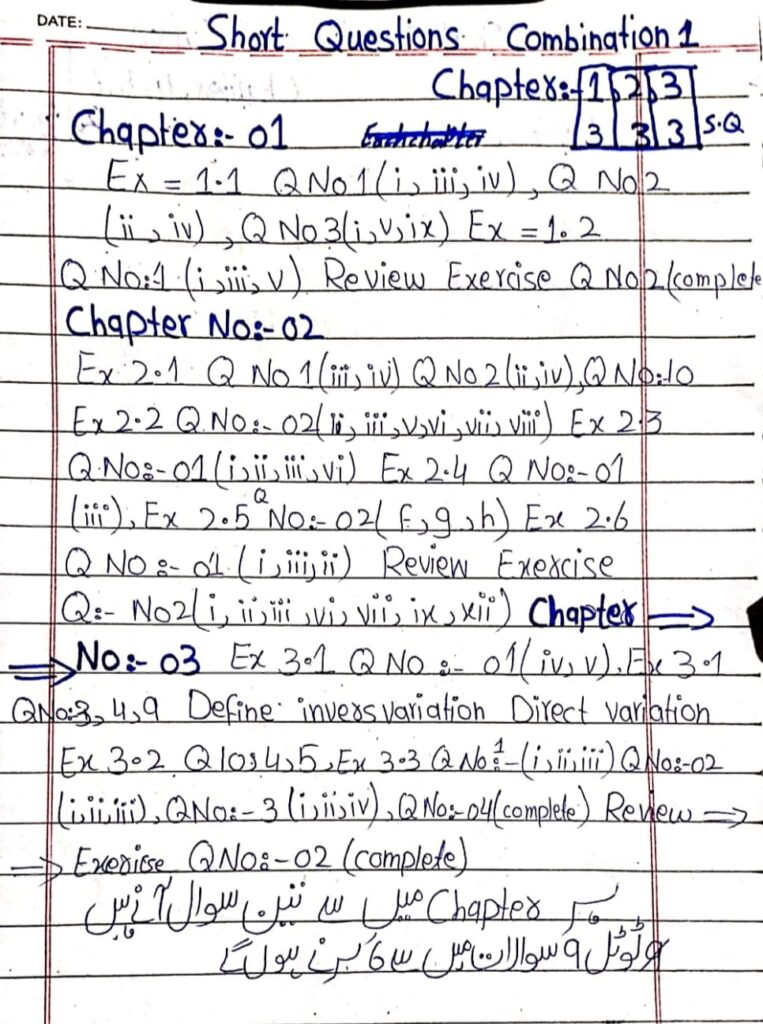 DATE:
Short Questions Combination 1
Chapter:- 1, 2, 3
Chapter:- 01 3 3 3 S.Q
Ex = 1.1 Q No 1 (i, iii, iv), Q No 2
(ii, iv), Q No 3(i, v, ix) Ex = 1.2
Q No:1 (i, iii, v) Review Exercise Q No 2 (complete
Chapter No:- 02
Ex 2.1 Q No 1 (iii, iv) Q No 2 (ii, iv), Q No:10
Ex 2.2 Q No:- 02( ii, iii, v, vi, vii, viii) Ex 2.3
Q No:- 01 (i, ii, iii, vi) Ex 2.4 Q No:- 01
(iii), Ex 2.5 Q No:- 02( f, g, h) Ex 2.6
Q No :- 01 (i, iii, ii) Review Exercise
Q:- No2(i, ii, iii, vi, vii, ix, xii) Chapter ⇒
⇒ No:- 03 Ex 3.1 Q No :- 01 (iv, v), Ex 3.1
Q No:3, 4, 9 Define invers variation Direct variation
Ex 3.2 Q 10, 4, 5, Ex 3.3 Q No:1- (i, ii, iii) Q No:-02
(i, ii, iii), Q No:- 3 (i, ii, iv), Q No:- 04 (complete) Review ⇒
⇒ Exericse Q No:- 02 (complete)
ہر Chapter میں سے تین سوال آئیں
ٹوٹل 9 سوالات میں سے 6 کرنے ہوں گے